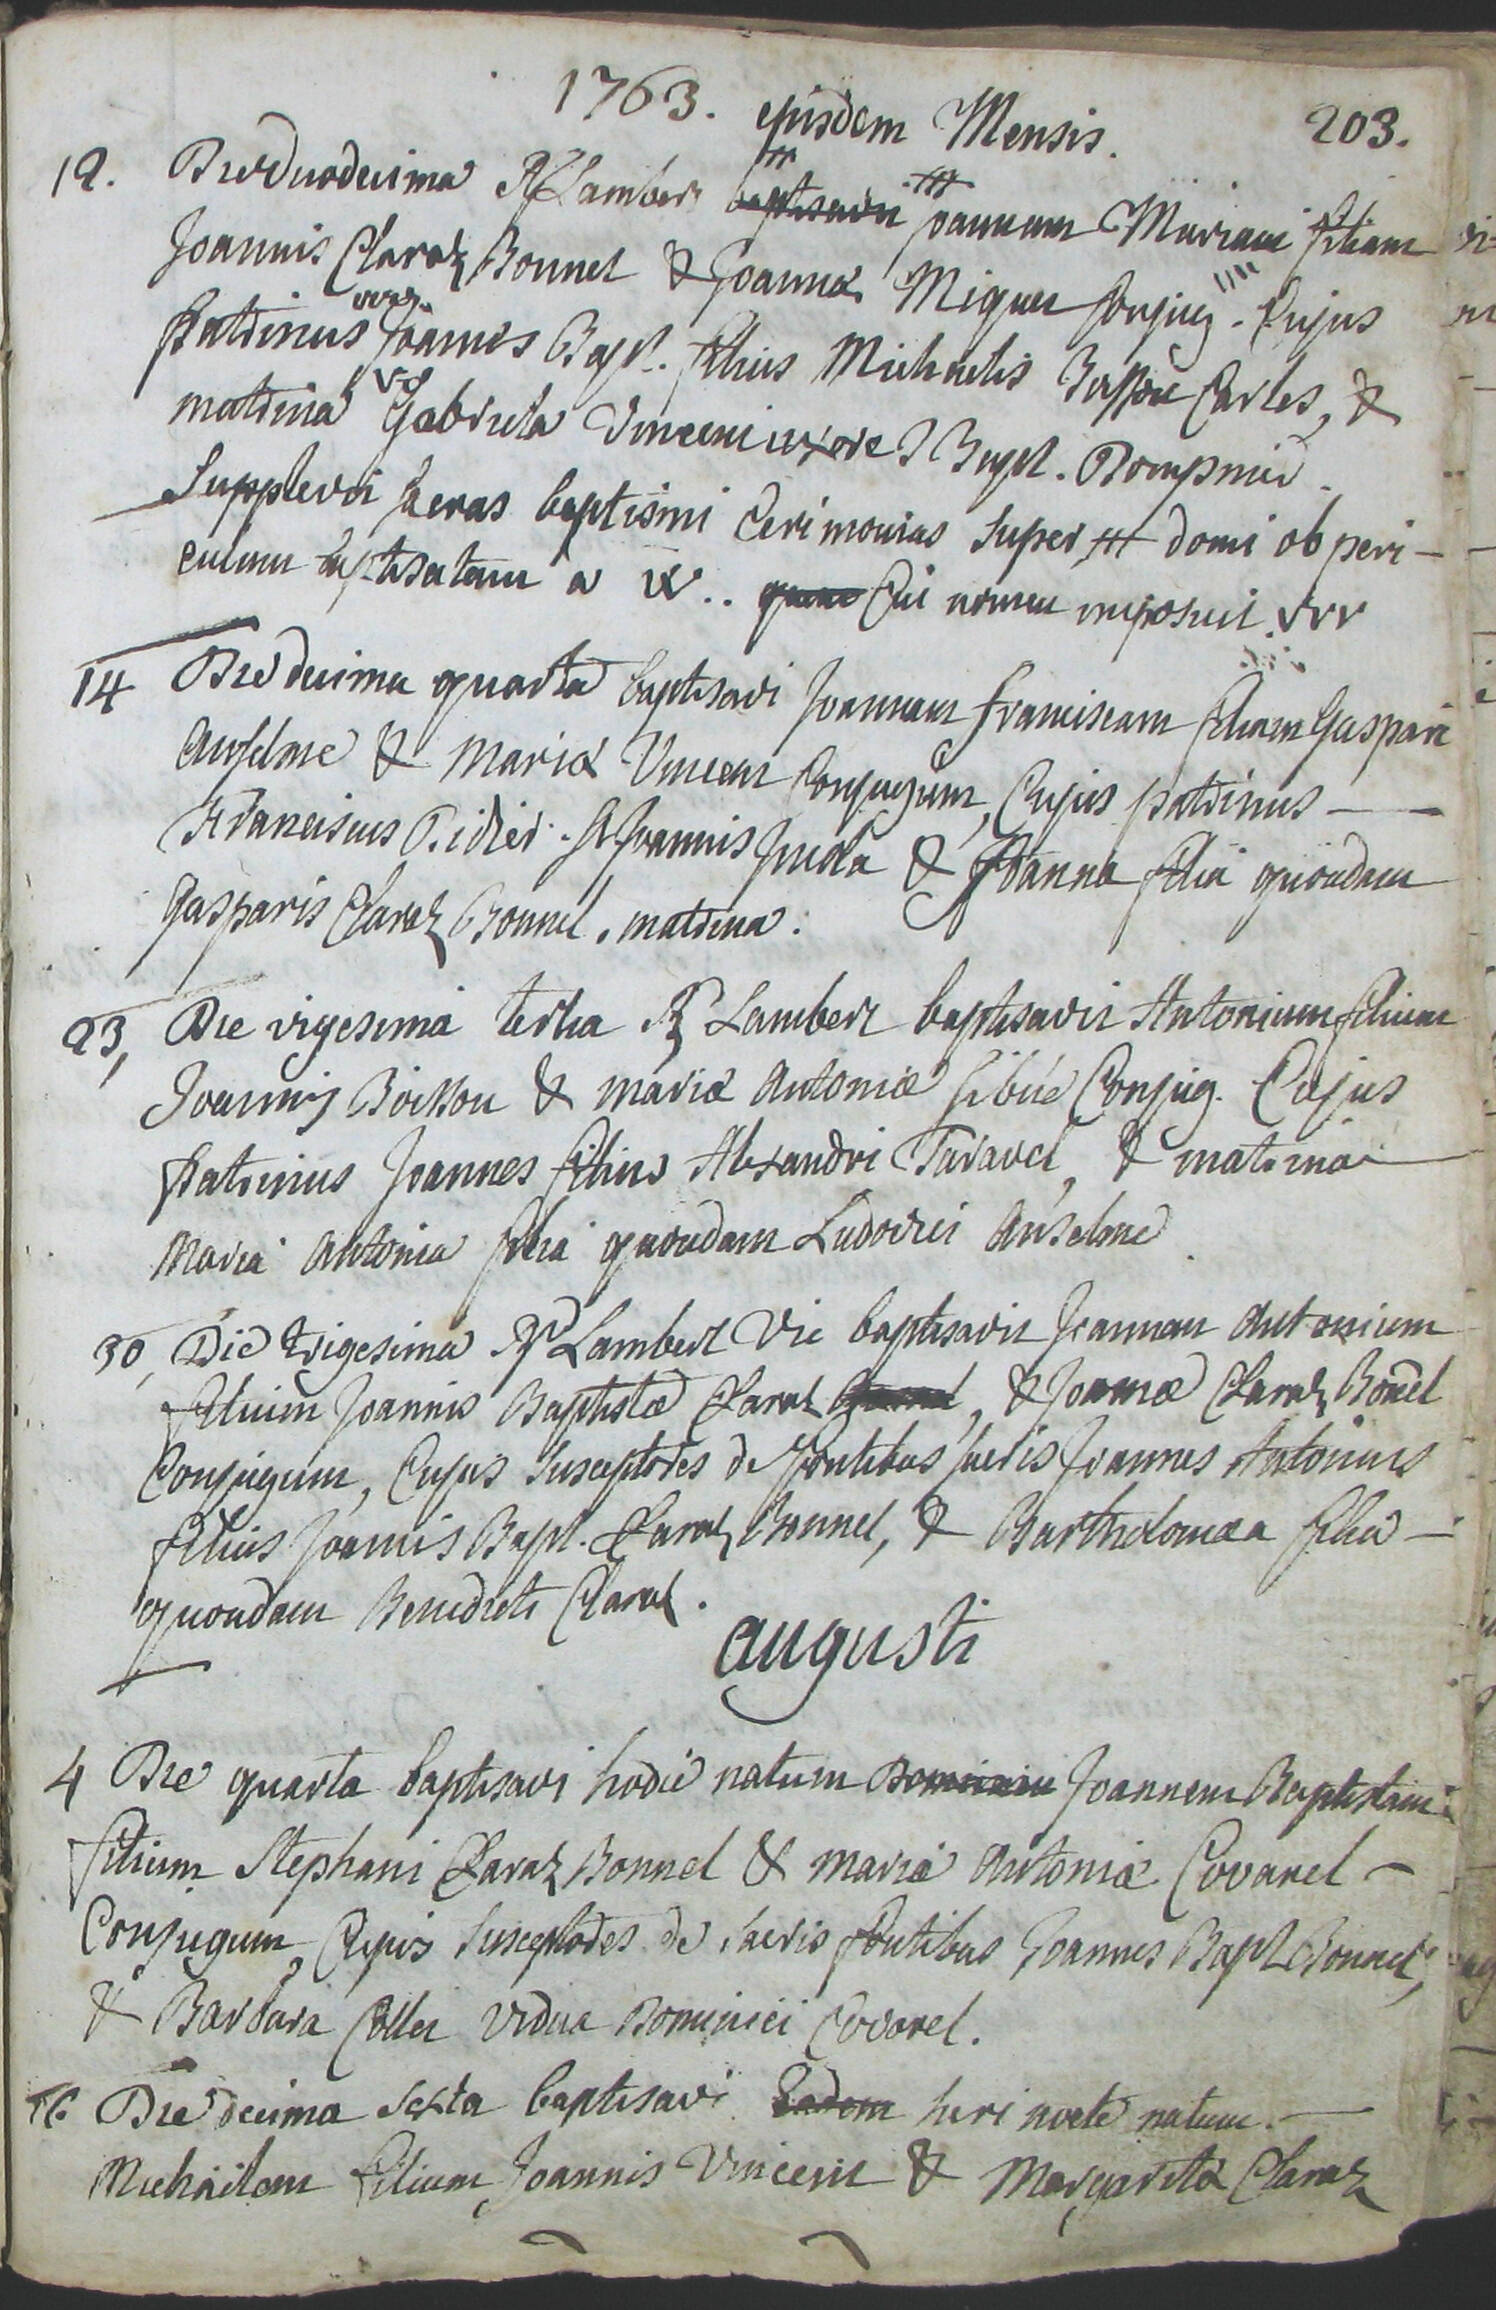 1763. ejusdem Mensis. 203.
12. Die duodecima Rd Lambert baptisavit Joannam Mariam filiam
Joannis Claraz Bonnel & Joannæ Miquet Conjug. Cujus
patrinus Joannes Bapt. filius Michaelis Carles, &
matrina Gabriela Vincent uxore J Bapt.
Supplevit sacras baptismi Cerimonias super domi ob peri-
culum baptisatam a Cui nomen imposuit.
14 Die decima quarta baptisavi Joannam Franciscam filiam Gasparis
Anselme & Mariæ Vincent Conjugum, Cujus patrinus —
Franciscus Didier fs Joannis Juda & Joanna filia quondam
Gasparis Claraz Bonnel, matrina.
23, Die vigesima tertia Rd Lambert baptisavit Antonium filium
Joannis Boisson & mariæ Antoniæ Sibué Conjug. Cujus
patrinus Joannes filius Alexandri Taravel, & matrina
Maria Antonia filia quondam Ludovici Anselme
30, Die trigesima Rd Lambert Vic baptisavit Joannem Antonium
filium Joannis Baptistæ Claraz, & Joannæ Claraz Bonel
Conjugum, Cujus Susceptores de fontibus sacris Joannes Antonius
filius Joannis Bapt. Claraz Bonnel, & Bartholomæa filia —
quondam Benedicti Claraz.
augusti
4 Die quarta baptisavi hodie natum Joannem Baptistam
filium Stephani Claraz Bonnel & mariæ Antoniæ Covarel —
Conjugum, Cujus Susceptores de sacris fontibus Joannes Bapt Bonnel,
& Barbara Collet vidua Dominici Covarel.
16 Die decima sexta baptisavi Eadem heri nocte natum. —
Michaelem filium Joannis Vincent & Margaritæ Claraz